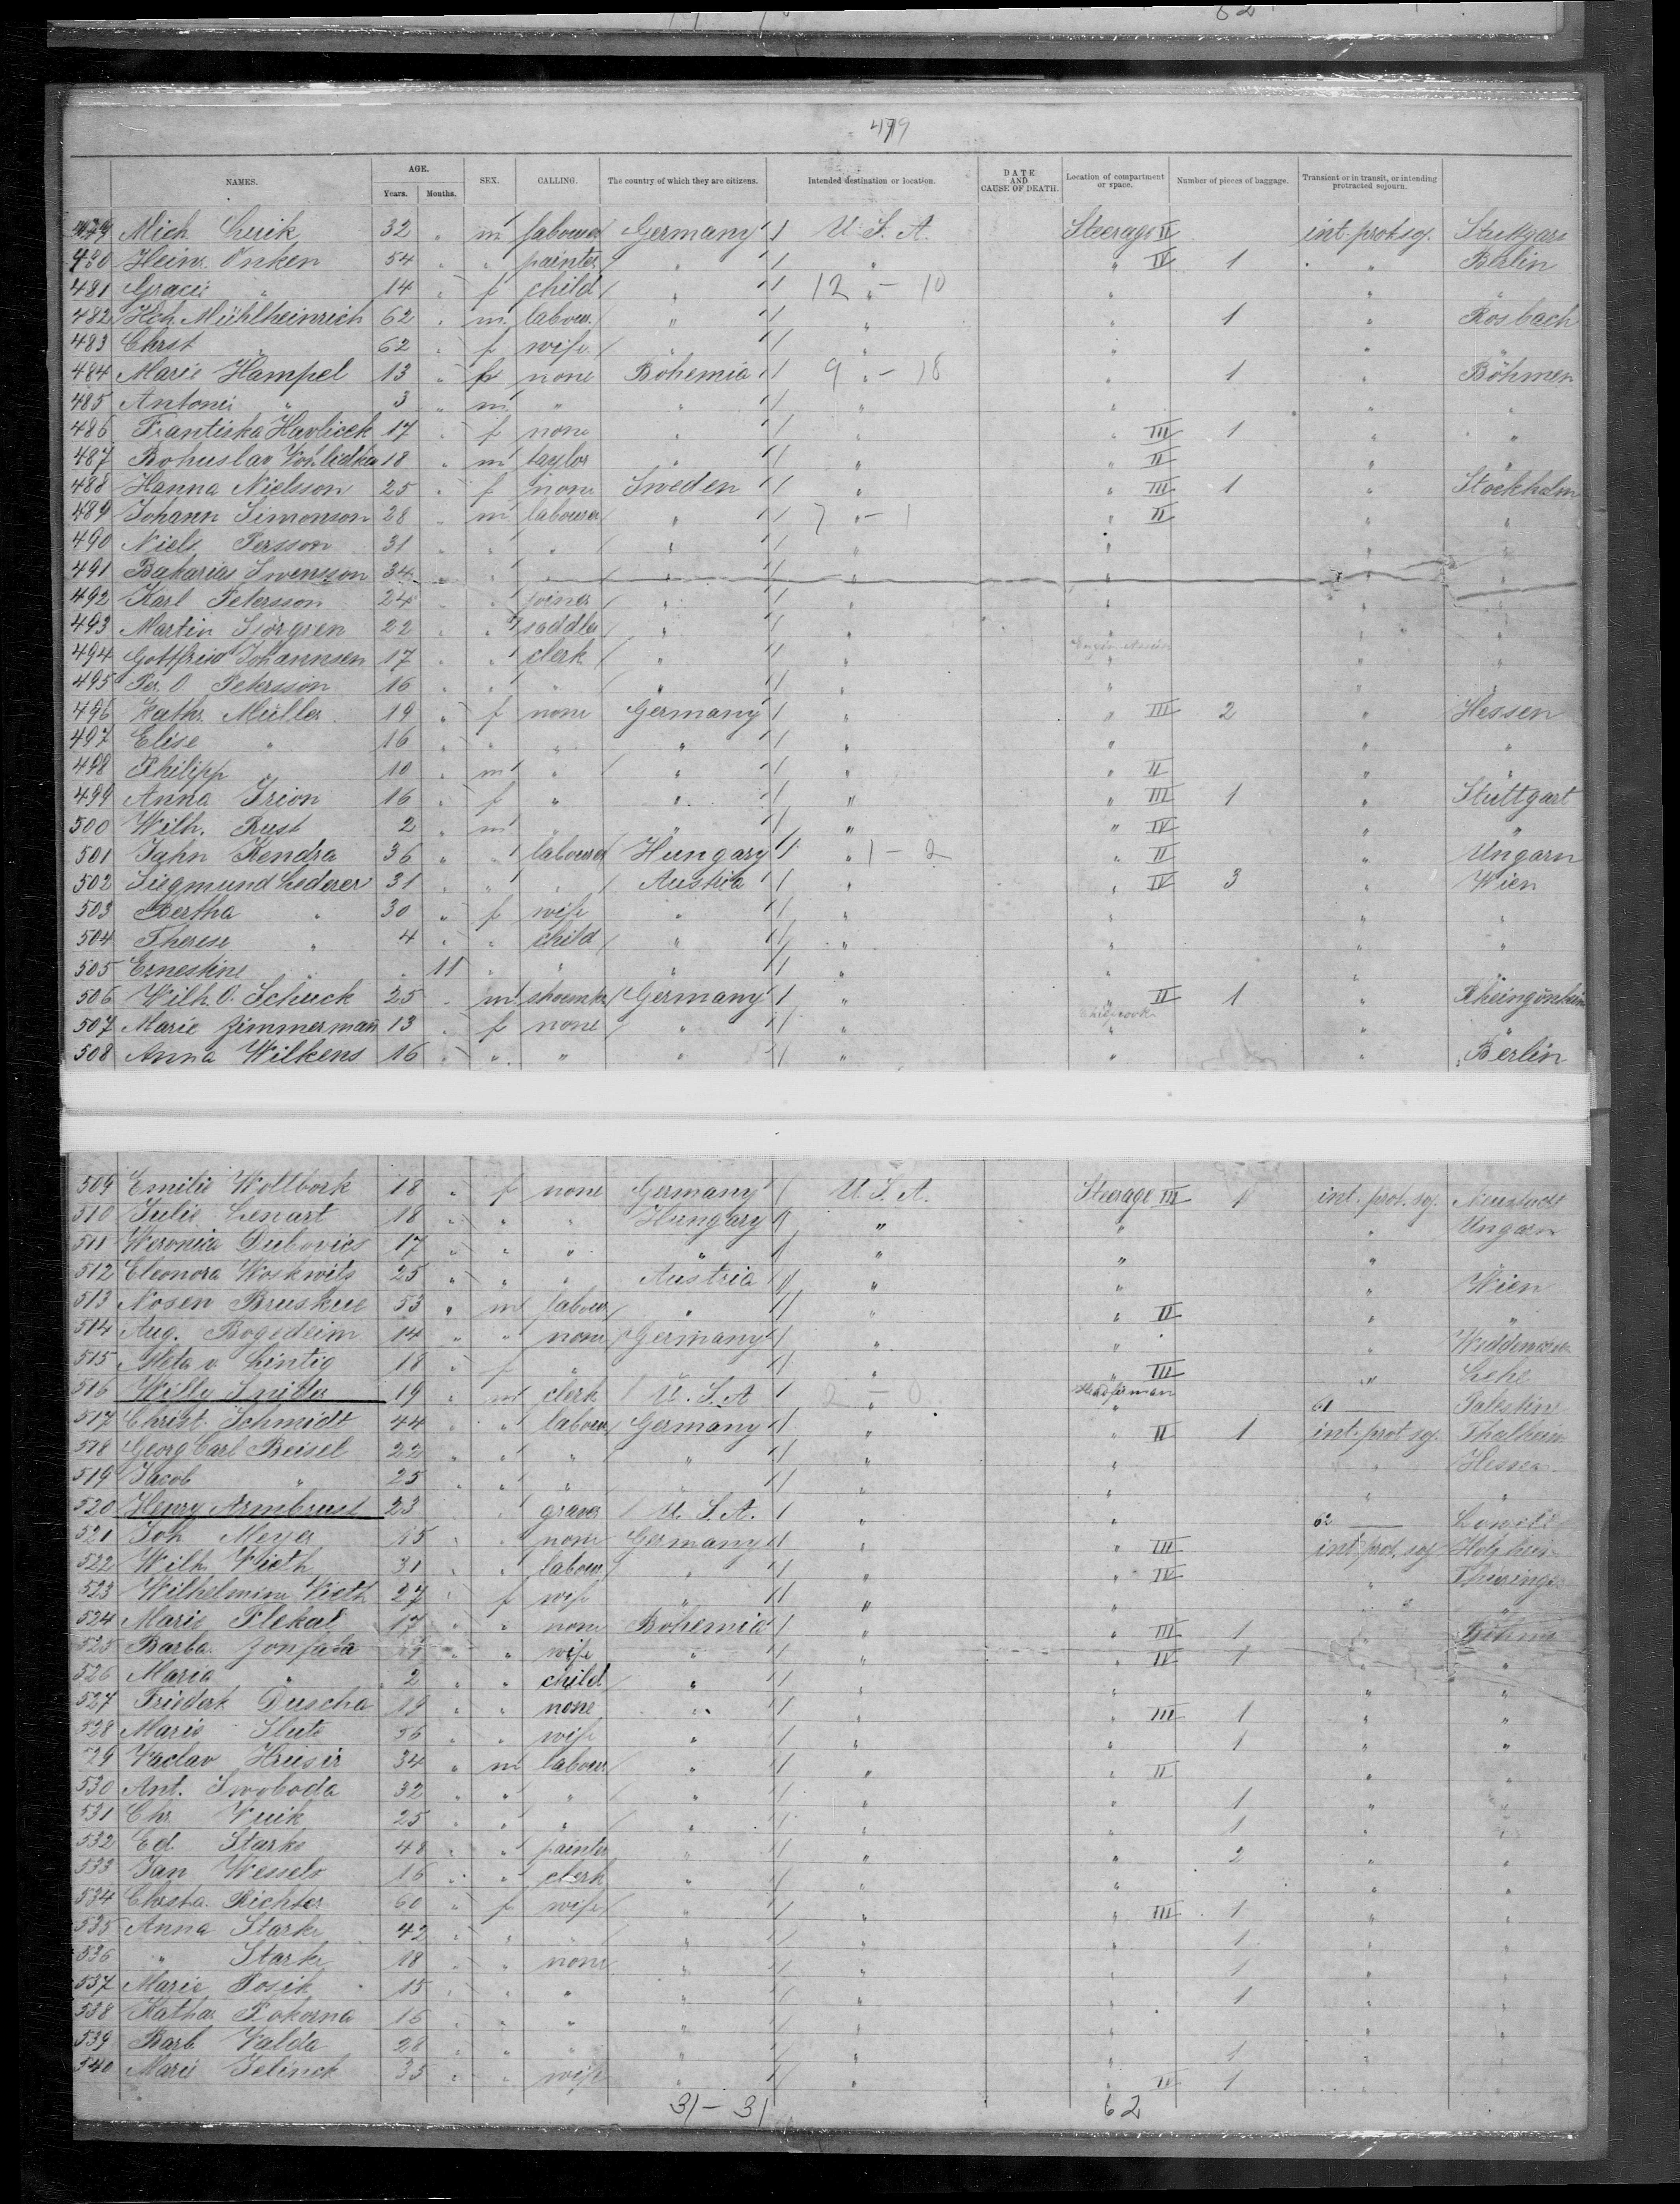 62
479
NAMES. AGE. Years. Months. SEX. CALLING. The country of which they are citizens. Intended destination or location. DATE AND CAUSE OF DEATH. Location of compartment or space. Number of pieces of baggage. Transient or in transit, or intending protracted sojourn.
479 Mich Luik 32 " m labourer Germany U. S. A. Steerage II int. prot. soj. Stuttgart
480 Heinr. Onken 54 " " painter " " " IV 1 " Berlin
481 Gracie " 14 " f child " 12 " - 10 " " "
482 Hch. Mühlheinrich 62 " m labour. " " " 1 " Rosbach
483 Chrst " 62 " f wife " " " " "
484 Marie Hampel 13 " f none Bohemia 9 " - 18 " 1 " Böhmen
485 Antonei " 3 " m " " " " " "
486 Frantiska Havlicek 17 " f none " " " III 1 " "
487 Bohuslav Vohlidka 18 " m taylor " " " II " "
488 Hanna Nielsson 25 " f none Sweden " " III 1 " Stockholm
489 Johann Simonson 28 " m labourer " 7 " - 1 " II " "
490 Niels Persson 31 " " " " " " " "
491 Bakarias Swensson 34 " " " " " " " "
492 Karl Petersson 24 " " joiner " " " " "
493 Martin Sjorgren 22 " " saddler " " " " "
494 Gottfried Johannsen 17 " " clerk " " " " "
495 Per. O Petersson 16 " " " " " " " "
496 Kathr. Müller 19 " f none Germany " " III 2 " Hessen
497 Elise " 16 " " " " " " " "
498 Philipp " 10 " m " " " " II " "
499 Anna Irion 16 " f " " " " III 1 " Stuttgart
500 Wilh. Rust 2 " m " " " " IV " "
501 Jahn Kendra 36 " " labourer Hungary " 1 - 2 " II " Ungarn
502 Siegmund Lederer 31 " " " Austria " " IV 3 " Wien
503 Bertha " 30 " f wife " " " " "
504 Therese " 4 " " child " " " " "
505 Ernestine " " 11 " " " " " " "
506 Wilh. O. Schuck 25 " m shoemkr Germany " " II 1 " Rheingönheim
Chief cook
507 Marie Zimmerman 13 " f none " " " " "
508 Anna Wilkens 16 " " " " " " " Berlin
509 Emilie Woltbork 18 " f none Germany U. S. A. Steerage III 1 int. prot. soj. Neustadt
510 Julie Lenart 18 " " " Hungary " " " Ungarn
511 Weronika Dubovics 17 " " " " " " "
512 Eleonora Woskwits 25 " " " Austria " " " Wien
513 Nosen Bruskue 53 " m labour " " " II " "
514 Aug. Bogedeim 14 " " none Germany " " "
515 Meta v. Lintig 18 " f " " " " III " Lehe
516 Willy Snitta 19 " m clerk U. S. A 2 - 0 " 61 Palestine
517 Christ. Schmidt 44 " " labour Germany " " II 1 int. prot soj. Thalheim
518 Georg Carl Beisel 22 " " " " " " " Hessen
519 Jacob " 25 " " " " " " " "
520 Henry Armbrust 23 " graver U. S. A. " " 62 Lowill
521 Joh Meyer 15 " " none Germany " " III int. prot. soj Holzheim
522 Wilh. Vieth 31 " " labour " " " IV " Thuringe
523 Wilhelmine Vieth 27 " f wife " " " " "
524 Marie Plekal 17 " " none Bohemia " " III 1 " Böhme
525 Barba. " " wife " " " IV 1 " "
526 Maria " 2 " " child " " " " "
527 Friederk Duscha 18 " " none " " " III 1 " "
528 Marie 36 " " wife " " " 1 " "
29 Vaclav Hrusir 34 " m labour " " " II " "
530 Ant. Swoboda 32 " " " " " " 1 " "
531 Chr. Vuik 25 " " " " " " 1 " "
532 Ed. Starke 48 " " painter " " " 2 " "
533 Jan Wessels 16 " " clerk " " " " "
534 Chrsta. Richter 60 " f wife " " " III 1 " "
535 Anna Starke 42 " " " " " " 1 " "
536 " Starke 18 " " none " " " 1 " "
537 Marie Posik 15 " " " " " " 1 " "
538 Kathar Pokorna 16 " " " " " " " "
539 Barb. Valda 28 " " " " " " 1 " "
540 Marie Jelinek 35 " " wife " " " II 1 " "
31 - 31 62